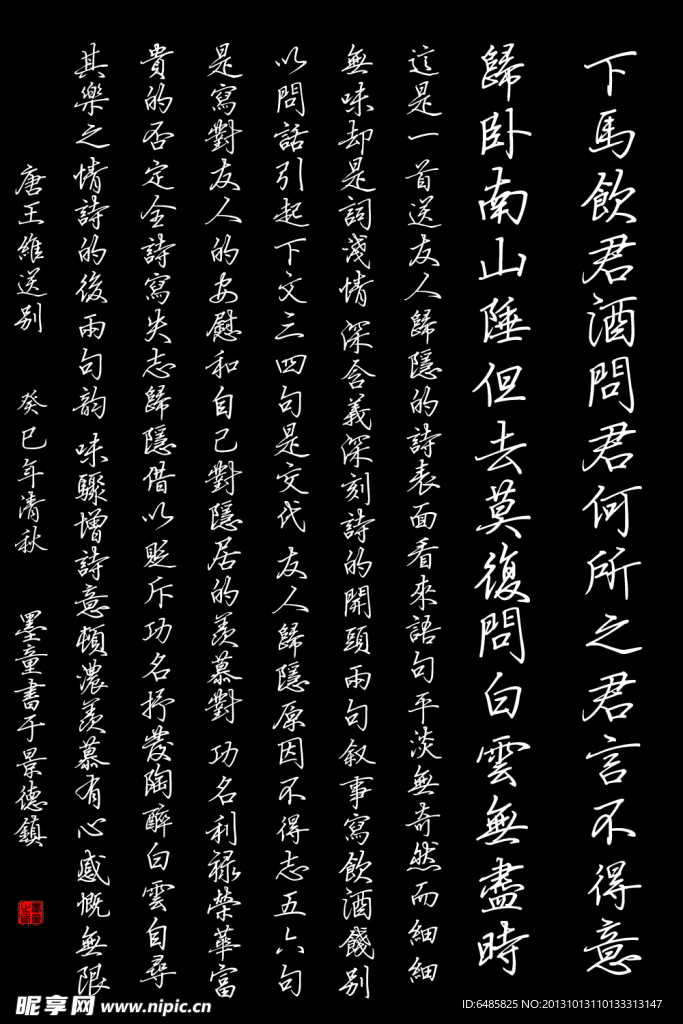 下馬飲君酒問君何所之君言不得意
歸卧南山陲但去莫復問白雲無盡時
這是一首送友人歸隱的詩表面看來語句平淡無奇然而細細
無味却是詞淺情深含義深刻詩的開頭兩句叙事寫飲酒餞别
以問話引起下文三四句是交代友人歸隱原因不得志五六句
是寫對友人的安慰和自己對隱居的羨慕對功名利禄榮華富
貴的否定全詩寫失志歸隱借以貶斥功名抒發陶醉白雲自尋
其樂之情詩的後兩句韵味驟增詩意頓濃羨慕有心感慨無限
唐王維送别 癸巳年清秋 墨童書于景德鎮
昵享网 www.nipic.cn
ID:6485825 NO:20131013110133313147